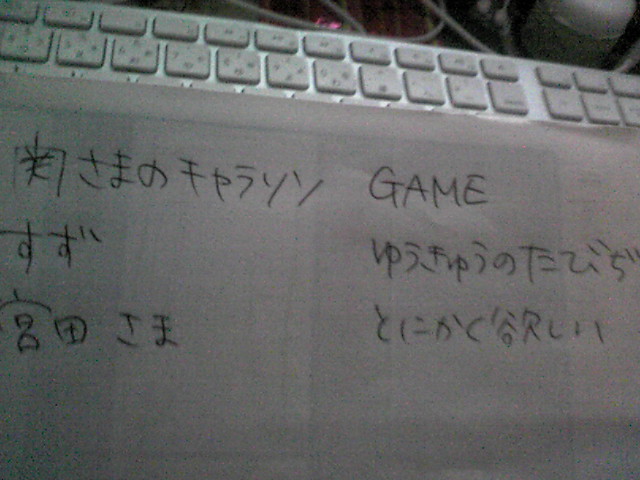 関さまのキャラソン GAME
すず ゆうきゅうのたびぢ
宮田さま とにかく欲しい